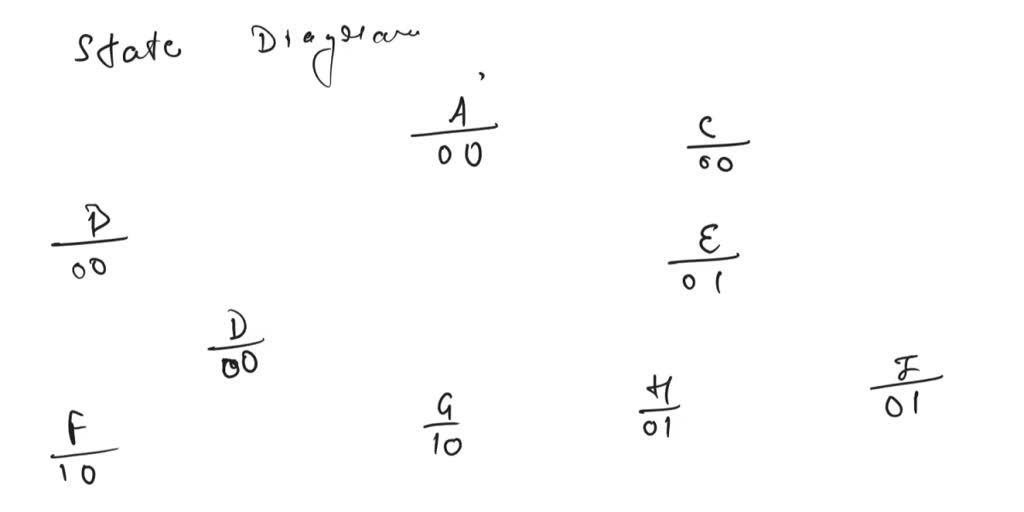 State Diagram
A
00
C
00
00
E
01
D
00
F
10
G
10
H
01
I
01